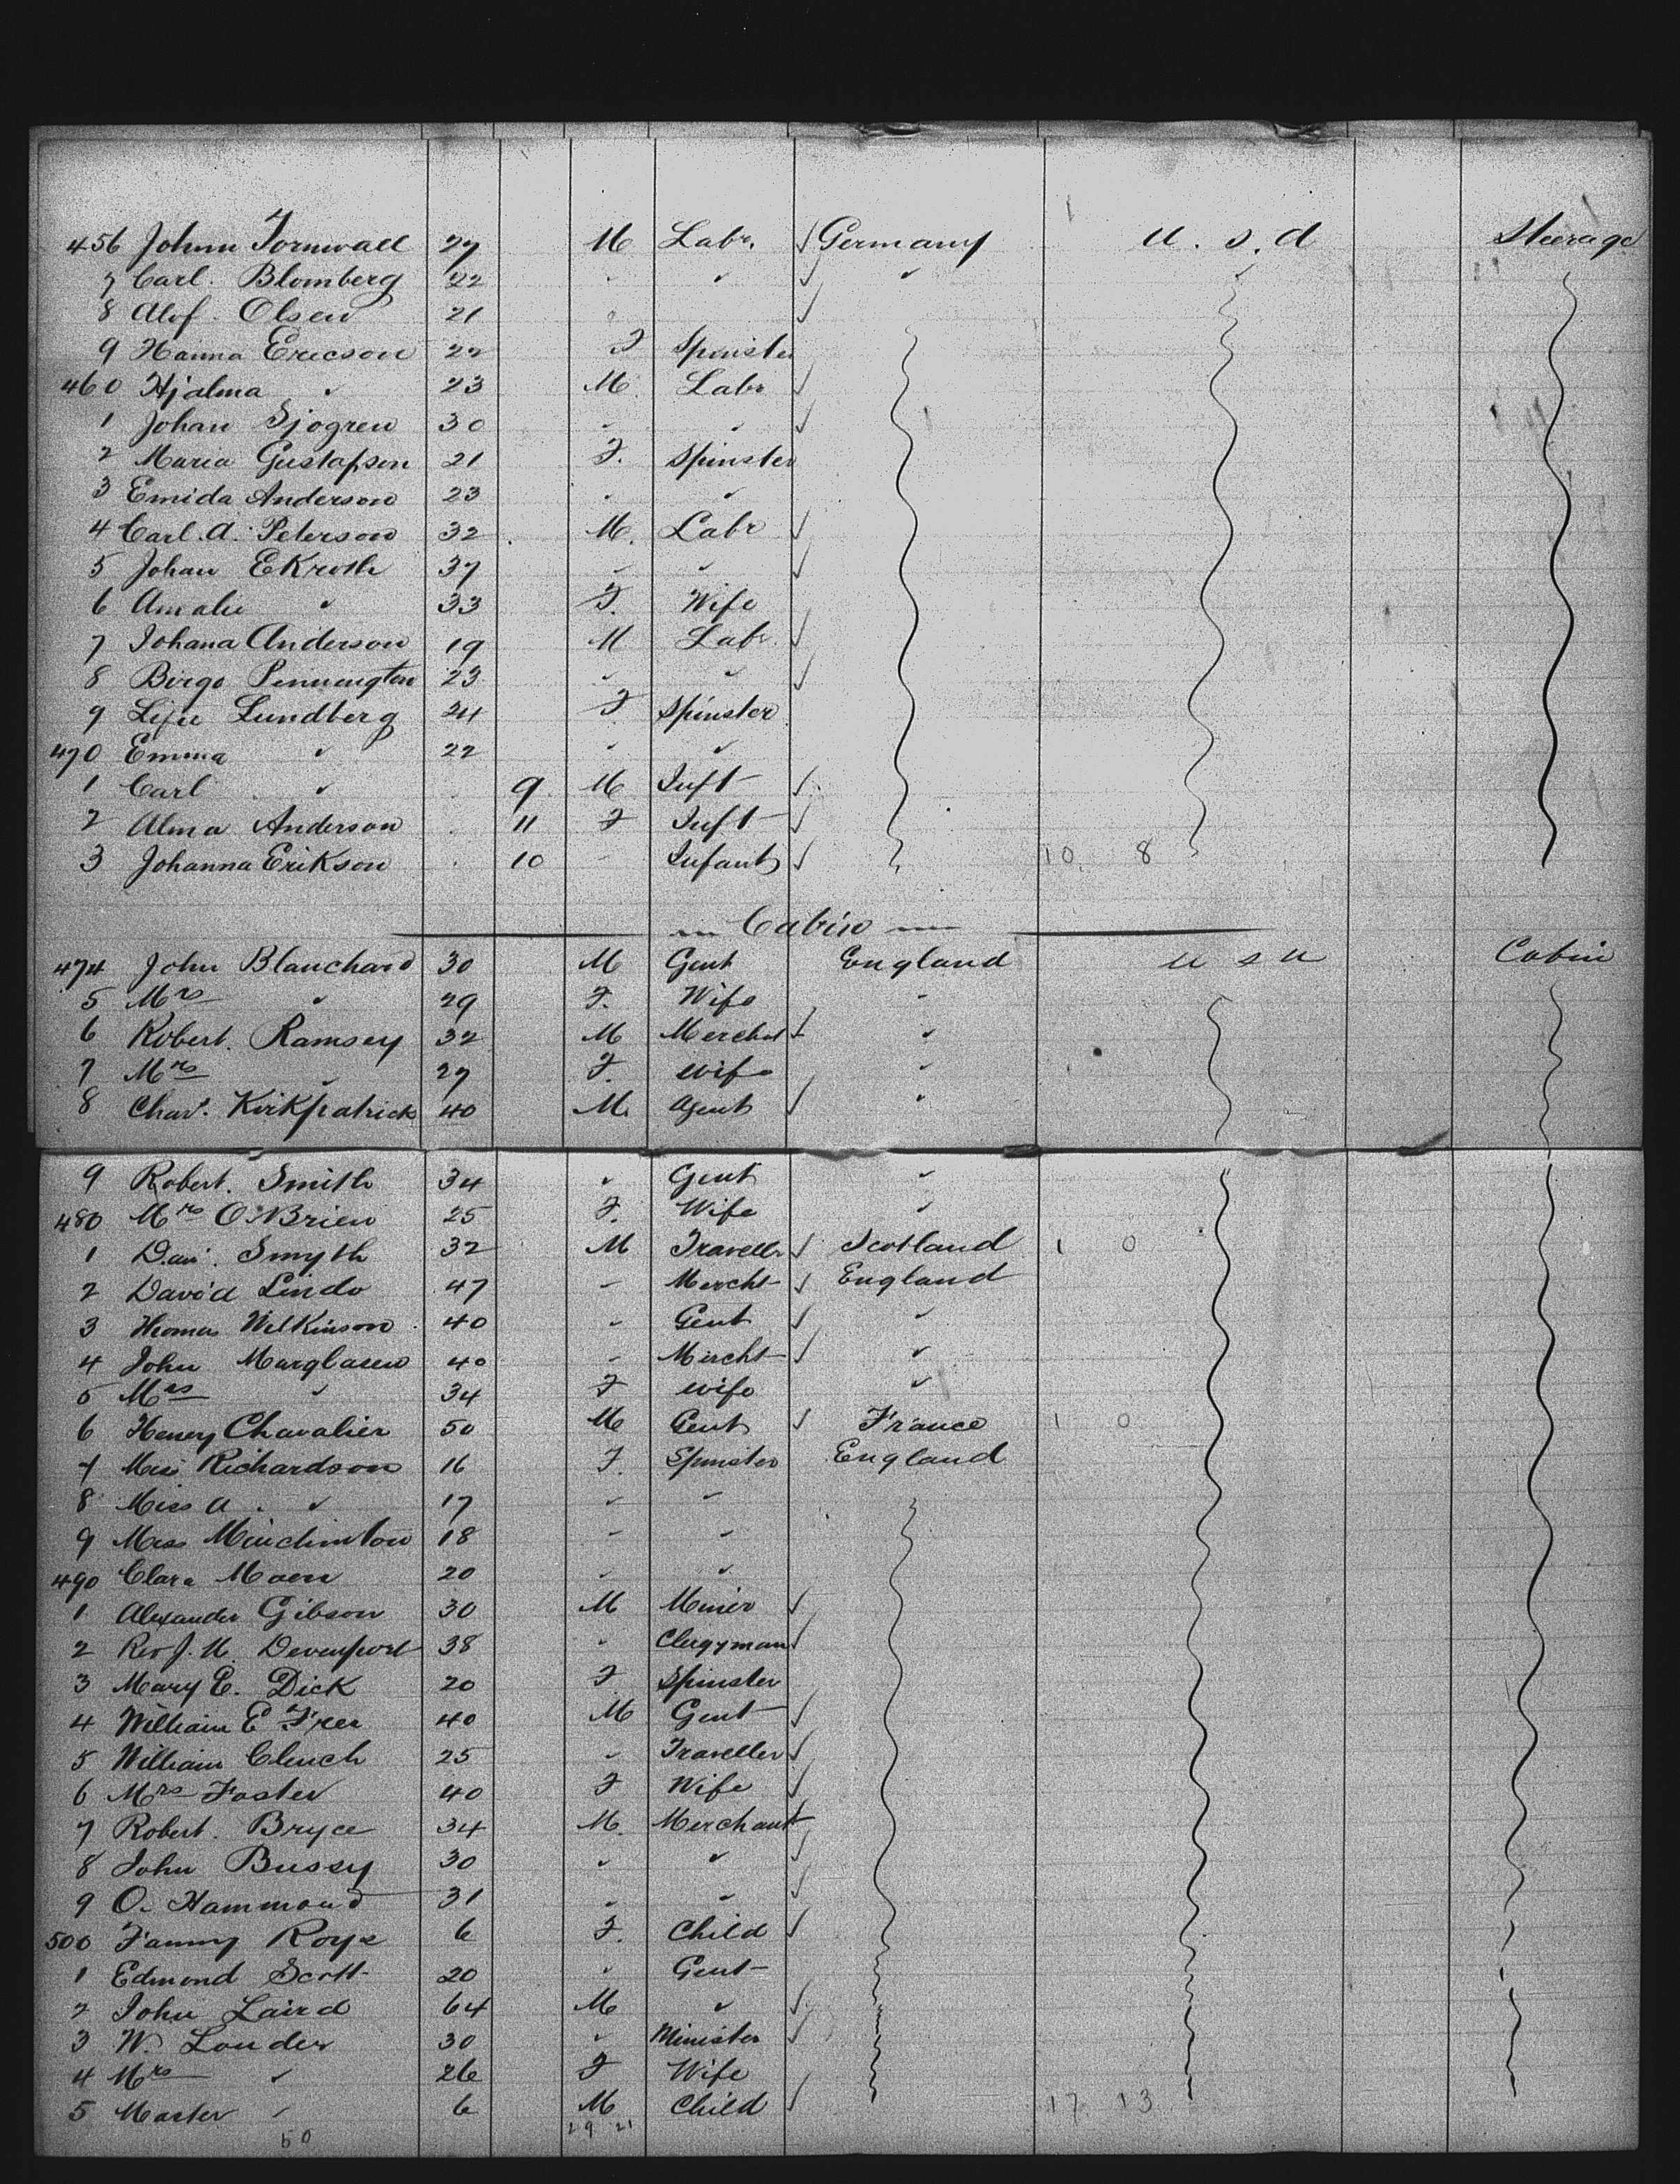 456 Johnn Tornwall 27 M Labr. ✓ Germany U. S. A Steerage
7 Carl. Blomberg 22 " " ✓ "
8 Alof. Olsen 21 ✓
9 Hanna Ericson 22 F Spinster
460 Hjalma " 23 M. Labr ✓
1 Johan Sjogren 30 " " ✓
2 Maria Gustafson 21 F. Spinster
3 Emida Anderson 23 " "
4 Carl. A. Peterson 32 M. Labr ✓
5 Johan EKroth 37 " " ✓
6 Amalie " 33 F. Wife ✓
7 Johana Anderson 19 M Labr. ✓
8 Birgo Pennington 23 " " ✓
9 Lundberg 24 F. Spinster
470 Emma " 22 " "
1 Carl " 9 M Inft ✓
2 Alma Anderson 11 F Inft ✓
3 Johanna EriKson 10 " Infant ✓ 10 8
Cabin
474 John Blanchard 30 M Gent England U S A Cabin
5 Mrs " 29 F. Wife "
6 Robert. Ramsey 32 M Merchat ✓ "
7 Mrs " 27 F. Wife "
8 Chas. Kirkpatrick 40 M. Agent ✓ "
9 Robert. Smith 34 " Gent "
480 Mrs O'Brien 25 F. Wife "
1 Davi. Smyth 32 M Travellr ✓ Scotland 1 0
2 David Lindo 47 " Mercht ✓ England
3 Thomas WilKinson 40 " Gent ✓ "
4 John 40 " Mercht ✓ "
5 Mrs " 34 F Wife "
6 Henery Chavalier 50 M Gent ✓ France 1 0
7 Miss Richardson 16 F. Spinster England
8 Miss A. " 17 " "
9 Miss Minchinton 18 " "
490 Clara Moen 20 " "
1 Alexander Gibson 30 M Miner ✓
2 Rev J. M. Devenport 38 " Clergyman ✓
3 Mary E. Dick 20 F. Spinster
4 William E Freer 40 M Gent ✓
5 William Clench 25 " Traveller ✓
6 Mrs Foster 40 F Wife ✓
7 Robert. Bryce 34 M. Merchant
8 John Bussey 30 " " ✓
9 O. Hammond 31 " " ✓
500 Fanny Roye 6 F. Child ✓
1 Edmond Scott 20 " Gent
2 John Laird 64 M " ✓
3 W. Louder 30 " Minister ✓
4 Mrs " 26 F Wife
5 Master " 6 M Child ✓ 17 13
50 29 21